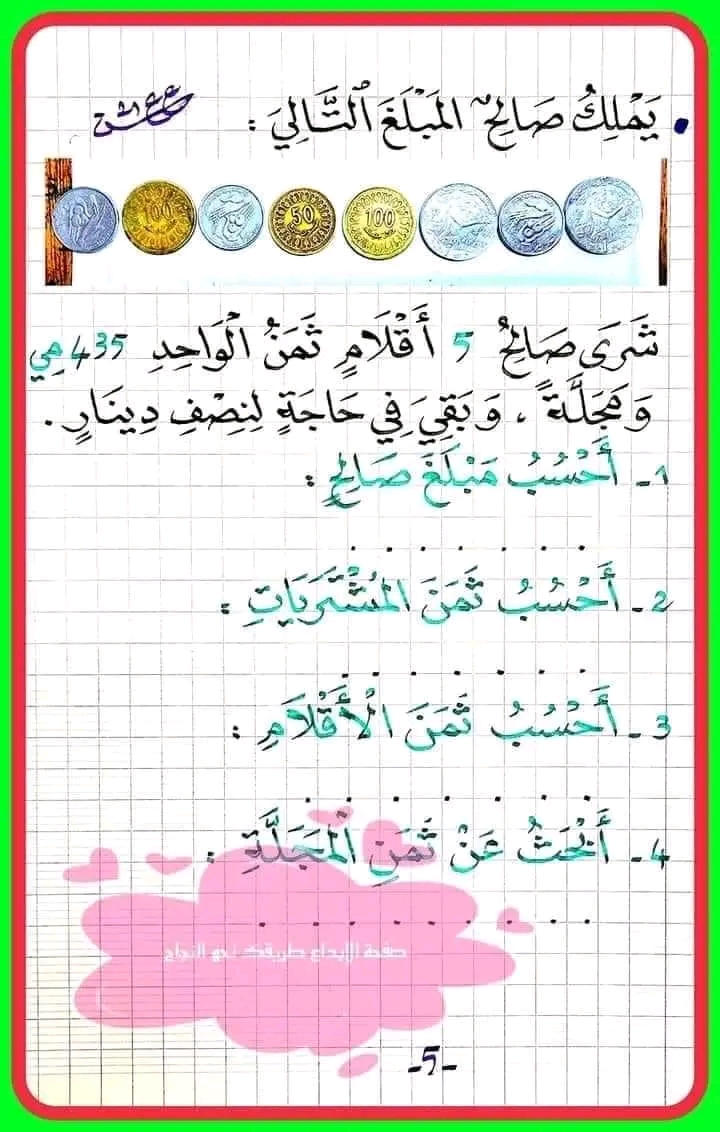 • يَمْلِكُ صَالِحٌ المَبْلَغَ التَّالِيَ :
100 50 100
شَرَى صَالِحُ 5 أَقْلَامٍ ثَمَنُ الْوَاحِدِ 435 مي
وَ مَجَلَّةً ، وَ بَقِيَ فِي حَاجَةٍ لِنِصْفِ دِينَارٍ .
1 - أَحْسُبُ مَبْلَغَ صَالِحٍ :
2 - أَحْسُبُ ثَمَنَ المُشْتَرَيَاتِ :
3 - أَحْسُبُ ثَمَنَ الْأَقْلَامِ :
4 - أَبْحَثُ عَنْ ثَمَنِ الْمَجَلَّةِ :
صفحة الإبداع طريقك نحو النجاح
-5-